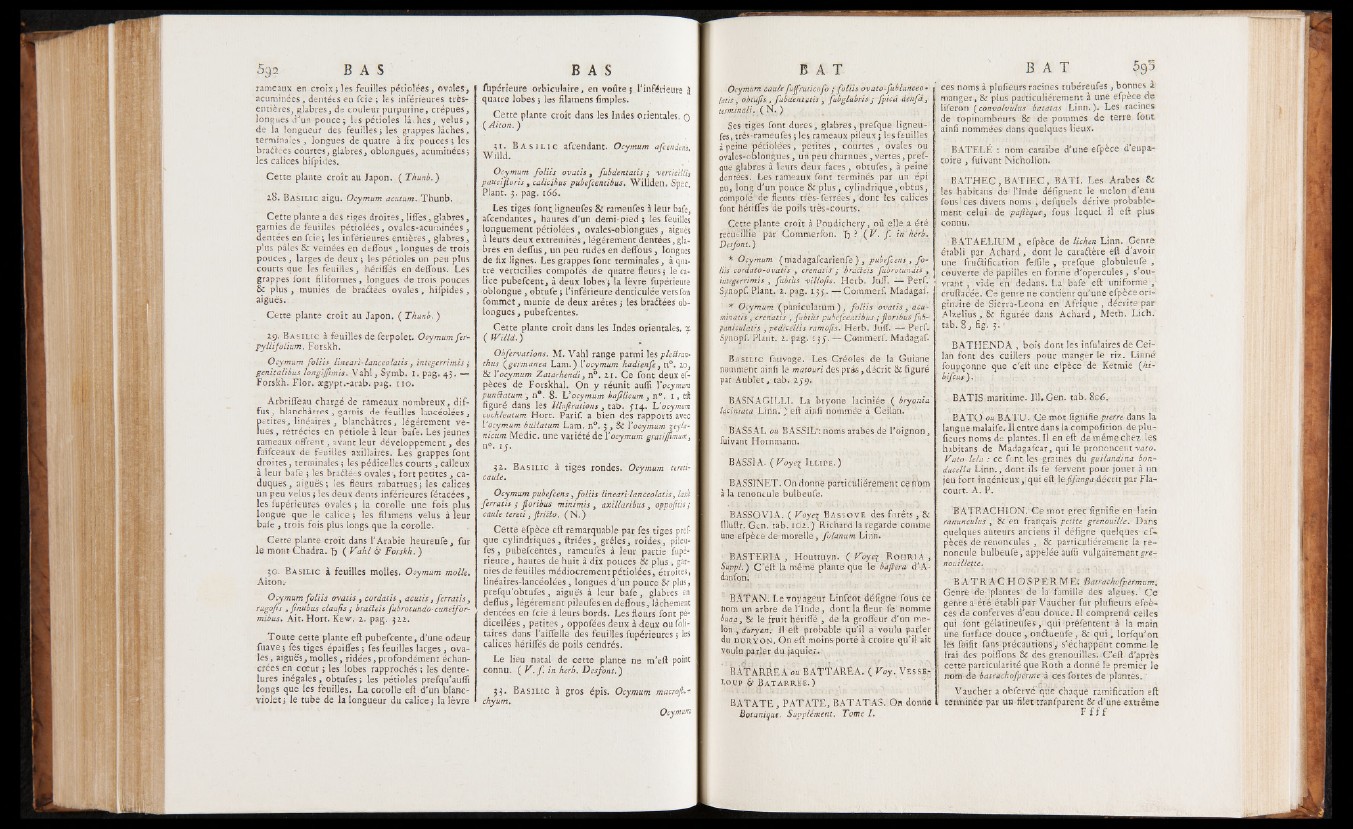 592 B A S
rameaux en croix ; les feuilles pétiolées, ovales,
acuminées, dentées en ſcie ; les inférieures très-
entières, glabres, de couleur purpurine, crépues,
longues d'un pouce ; les pétioles lâches, velus,
de la longueur des feuilles ; les grappes lâches,
terminales, longues de quatre à ſix pouces ; les
bractées courtes, glabres, oblongues, acuminées ;
les calices hiſpides.
Cette plante croît au Japon. ( Thunb. )
28. BASILIC aigu. Ocymum acutum. Thunb.
Cette plante a des tiges droites, liſſes, glabres,
garnies de feuilles pétiolées, ovales-acuminées,
dentées en ſcie ; les inférieures entières, glabres,
plus pâles & veinées en deſſous, longues de trois
pouces, larges de deux ; les pétioles un peu plus
courts que les feuilles, hériſſés en deſſous. Les
grappes ſont filiformes, longues de trois pouces
& plus, munies de bractées ovales, hiſpides,
aiguës.
Cette plante croît au Japon. ( Thunb. )
29. BASILIC à feuilles de ſerpolet. Ocymum ſer-
pyllifolium. Forskh.
Ocymum foliis lineari-lanceolatis, integerrimis ;
genitalibus longiſſimis. Vahl, Symb. 1. pag. 43. —
Forskh. Flor. ægypt.-arab. pag. 110.
Arbriſſeau chargé de rameaux nombreux, dif-
fus, blanchâtres, garnis de feuilles lancéolées,
petites, linéaires, blanchâtres, légérement ve-
lues, rétrécies en pétiole à leur baſe. Les jeunes
rameaux offrent, avant leur développement, des
faiſceaux de feuilles axillaires. Les grappes ſont
droites, terminales ; les pédicelles courts, calleux
à leur baſe ; les bractées ovales, fort petites, ca-
duques, aiguës ; les fleurs rabattues ; les calices
un peu velus ; les deux dents inférieures ſétacées,
les ſupérieures ovales ; la corolle une fois plus
longue que le calice ; les filamens velus à leur
baſe, trois fois plus longs que la corolle.
Cette plante croît dans l'Arabie heureuſe, ſur
le mont Chadra. ♄ ( Vahl & Forskh. )
30. BASILIC à feuilles molles. Ocymum molle.
Aiton.
Ocymum foliis ovatis, cordatis, acutis, ſerratis,
rugoſis, ſinubus clauſis ; bracteis ſubrotundo-cuneifor-
mibus. Ait. Hort. Kew. 2. pag. 322.
Toute cette plante eſt pubeſcente, d'une odeur
ſuave ; ſes tiges épaiſſes ; ſes feuilles larges, ova-
les, aiguës, molles, ridées, profondément échan-
crées en cœur ; les lobes rapprochés ; les dente-
lures inégales, obtuſes ; les pétioles preſqu'auſſi
longs que les feuilles. La corolle eſt d'un blanc-
violet ; le tube de la longueur du calice ; la lèvre
B A S
ſupérieure orbiculaire, en voûte ; l'inférieure à
quatre lobes ; les filamens ſimples.
Cette plante croît dans les Indes orientales. ☉
( Aiton. )
31. BASILIC aſcendant. Ocymum aſcendens.
Willd.
Ocymum foliis ovatis, ſubdentatis ; verticillis
paucifloris, calicibus pubeſcentibus. Willden. Spec.
Plant. 3. pag. 166.
Les tiges ſont ligneuſes & rameuſes à leur baſe,
aſcendantes, hautes d'un demi-pied ; les feuilles
longuement pétiolées, ovales-oblongues, aiguës
à leurs deux extrémités, légérement dentées, gla-
bres en deſſus, un peu rudes en deſſous, longues
de ſix lignes. Les grappes ſont terminales, à qua-
tre verticilles compoſés de quatre fleurs ; le ca-
lice pubeſcent, à deux lobes ; la lèvre ſupérieure
oblongue, obtuſe ; l'inférieure denticulée vers ſon
ſommet, munie de deux arêtes ; les bractées ob-
longues, pubeſcentes.
Cette plante croît dans les Indes orientales. ♃
( Willd. )
Obſervations. M. Vahl range parmi les plectran-
thus (germanea Lam.) l'ocymum hadienſe, n°. 20,
& l'ocymum Zatarhendi, n°. 21. Ce ſont deux eſ-
pèces de Forskhal. On y réunit auſſi l'ocymum
punctatum, n°. 8. L'ocymum baſilicum, n°. 1, eſt
figuré dans les Illuſtrations, tab. 514. L'ocymum
cochleatum Hort. Pariſ. a bien des rapports avec
l'ocymum bullatum Lam. n°. 3, & l'ocymum zeyla-
nicum Medic. une variété de l'ocymum gratiſſimum,
n°. 15.
32. BASILIC à tiges rondes. Ocymum tereti-
caule.
Ocymum pubeſcens, foliis lineari-lanceolatis, laxè
ſerratis ; floribus minimis, axillaribus, oppoſitis ;
caule tereti, ſtricto. ( N. )
Cette eſpèce eſt remarquable par ſes tiges preſ-
que cylindriques, ſtriées, grêles, roides, pileu-
ſes, pubeſcentes, rameuſes à leur partie ſupé-
rieure, hautes de huit à dix pouces & plus, gar-
nies de feuilles médiocrement pétiolées, étroites,
linéaires-lancéolées, longues d'un pouce & plus,
preſqu'obtuſes, aiguës à leur baſe, glabres en
deſſus, légérement pileuſes en deſſous, lâchement
dentées en ſcie à leurs bords. Les fleurs ſont pé-
dicellées, petites, oppoſées deux à deux ou ſoli-
taires dans l'aiſſelle des feuilles ſupérieures ; les
calices hériſſés de poils cendrés.
Le lieu natal de cette plante ne m'eſt point
connu. ( V. ſ. in herb. Desfont. )
33. BASILIC à gros épis. Ocymum macroſta-
chyum.
Ocymum
B A T
Ocymum caule ſuffruticoſo ; foliis ovato-ſublanceo-
latis, obtuſis, ſubdentatis, ſubglabris ; ſpicâ denſâ,
terminali. ( N. )
Ses tiges ſont dures, glabres, preſque ligneu-
ſes, très-rameuſes ; les rameaux pileux ; les feuilles
à peine pétiolées, petites, courtes, ovales ou
ovales-oblongues, un peu charnues, vertes, preſ-
que glabres à leurs deux faces, obtuſes, à peine
dentées. Les rameaux ſont terminés par un épi
nu, long d'un pouce & plus, cylindrique, obtus,
compoſé de fleurs très-ſerrées, dont les calices
ſont hériſſés de poils très-courts.
Cette plante croît à Pondichery, où elle a été
recueillie par Commerſon. ♄ ? ( V. ſ. in herb.
Desfont. )
* Ocymum (madagaſcarienſe), pubeſcens, fo-
liis cordato-ovatis, crenatis ; bracteis ſubrotundis,
integerrimis, ſubtùs villoſis. Herb. Juſſ. — Perſ.
Synopſ. Plant. 2. pag. 135. — Commerſ. Madagaſ.
* Ocymum (paniculatum), foliis ovatis, acu-
minatis, crenatis, ſubtùs pubeſcentibus ; floribus ſub-
paniculatis, pedicellis ramoſis. Herb. Juſſ. — Perſ.
Synopſ. Plant. 2. pag. 135. — Commerſ. Madagaſ.
BASILIC ſauvage. Les Créoles de la Guiane
nomment ainſi le matouri des prés, décrit & figuré
par Aublet, tab. 259.
BASNAGILLI. La bryone laciniée ( bryonia
laciniata Linn. ) eſt ainſi nommée à Ceilan.
BASSAL ou BASSIL : noms arabes de l'oignon,
ſuivant Hornmann.
BASSIA. ( Voyez ILLIPÉ. )
BASSINET. On donne particuliérement ce nom
à la renoncule bulbeuſe.
BASSOVIA. ( Voyez BASSOVE des forêts, &
Illuſtr. Gen. tab. 102. ) Richard la regarde comme
une eſpèce de morelle, ſolanum Linn.
BASTERIA, Houttuyn. ( Voyez ROURIA,
Suppl. ) C'eſt la même plante que le baſtera d'A-
danſon.
BATAN. Le voyageur Linſcot déſigne ſous ce
nom un arbre de l'Inde, dont la fleur ſe nomme
buaa, & le fruit hériſſé, de la groſſeur d'un me-
lon, duryan. Il eſt probable qu'il a voulu parler
du DURYON. On eſt moins porté à croire qu'il ait
voulu parler du jaquier.
BATARREA ou BATTARÉA. ( Voy. VESSE-
LOUP & BATARRÉE. )
BATATE, PATATE, BATATAS. On donne
Botanique. Supplément. Tome I.
B A T 593
ces noms à pluſieurs racines tubéreuſes, bonnes à
manger, & plus particuliérement à une eſpèce de
liſeron (convolvulus batatas Linn.). Les racines
de topinambours & de pommes de terre ſont
ainſi nommées dans quelques lieux.
BATELÉ : nom caraïbe d'une eſpèce d'eupa-
toire, ſuivant Nicholſon.
BATHEC, BATIEC, BATI. Les Arabes &
les habitans de l'Inde déſignent le melon d'eau
ſous ces divers noms, deſquels dérive probable-
ment celui de paſtèque, ſous lequel il eſt plus
connu.
BATAELIUM, eſpèce de lichen Linn. Genre
établi par Achard, dont le caractère eſt d'avoir
une fructification ſeſſile, preſque globuleuſe,
couverte de papilles en forme d'opercules, s'ou-
vrant, vide en dedans. La baſe eſt uniforme,
cruſtacée. Ce genre ne contient qu'une eſpèce ori-
ginaire de Sierra-Leona en Afrique, décrite par
Afzelius, & figurée dans Achard, Meth. Lich.
tab. 8, fig. 3.
BATHENDA, bois dont les inſulaires de Cei-
lan font des cuillers pour manger le riz. Linné
ſoupçonne que c'eſt une eſpèce de Ketmie (hi-
biſcus).
BATIS maritime. Ill. Gen. tab. 806.
BATO ou BATU. Ce mot ſignifie pierre dans la
langue malaiſe. Il entre dans la compoſition de plu-
ſieurs noms de plantes. Il en eſt de même chez les
habitans de Madagaſcar, qui le prononcent vato.
Vato lela : ce ſont les graines du guilandina bon-
ducella Linn., dont ils ſe ſervent pour jouer à un
jeu fort ingénieux, qui eſt le fifanga décrit par Fla-
court. A. P.
BATRACHION. Ce mot grec ſignifie en latin
ranunculus, & en français petite grenouille. Dans
quelques auteurs anciens il déſigne quelques eſ-
pèces de renoncules, & particuliérement la re-
noncule bulbeuſe, appelée auſſi vulgairement gre-
nouillette.
BATRACHOSPERME. Batrachoſpermum.
Genre de plantes de la famille des algues. Ce
genre a été établi par Vaucher ſur pluſieurs eſpè-
ces de conferves d'eau douce. Il comprend celles
qui ſont gélatineuſes, qui préſentent à la main
une ſurface douce, onctueuſe, & qui, lorſqu'on
les ſaiſit ſans précautions, s'échappent comme le
frai des poiſſons & des grenouilles. C'eſt d'après
cette particularité que Roth a donné le premier le
nom de batrachoſperme à ces ſortes de plantes.
Vaucher a obſervé que chaque ramification eſt
terminée par un filet tranſparent & d'une extrême
F f f f